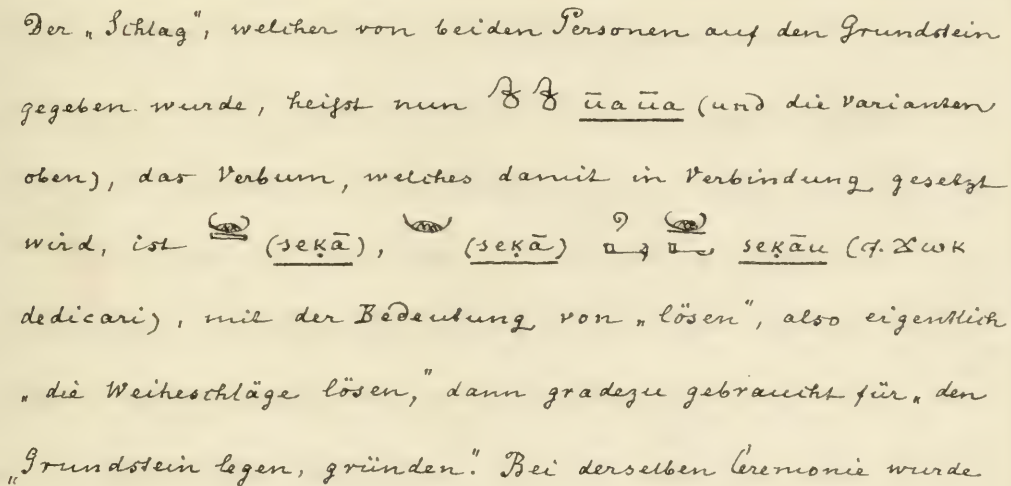 Der „Schlag“, welcher von beiden Personen auf den Grundstein
gegeben wurde, heifst nun ūa ūa (und die Varianten
oben), das Verbum, welches damit in Verbindung gesetzt
wird, ist (seḳā), (seḳā) seḳāu (cf. ϫωκ
dedicari), mit der Bedeutung von „lösen“, also eigentlich
„die Weiheschläge lösen,“ dann gradezu gebraucht für „den
„Grundstein legen, gründen“. Bei derselben Ceremonie wurde